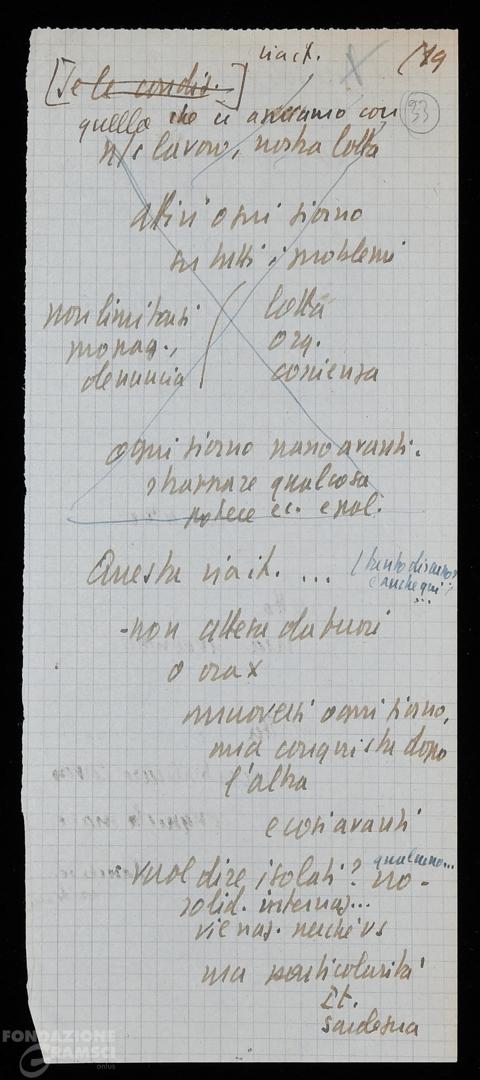 via it. (19
[Se le condiz.] 33
quello che ci avviamo con
n/s lavoro, nostra lotta
attivi ogni giorno
su tutti i problemi
non limitarsi ( lotta
propag., org.
denuncia coscienza
ogni giorno passo avanti.
strappare qualcosa
potere ec. e pol.
Questa via it. ... (tanto discusso
e anche qui
...
- non attesa da fuori
o ora x
muoversi ogni giorno,
una conquista dopo
l'altra
e così avanti
- vuol dire isolati? no - qualcuno...
solid. internaz...
vie naz. perché vs
ma particolarità
It.
Sardegna
FONDAZIONE
GRAMSCI
onlus